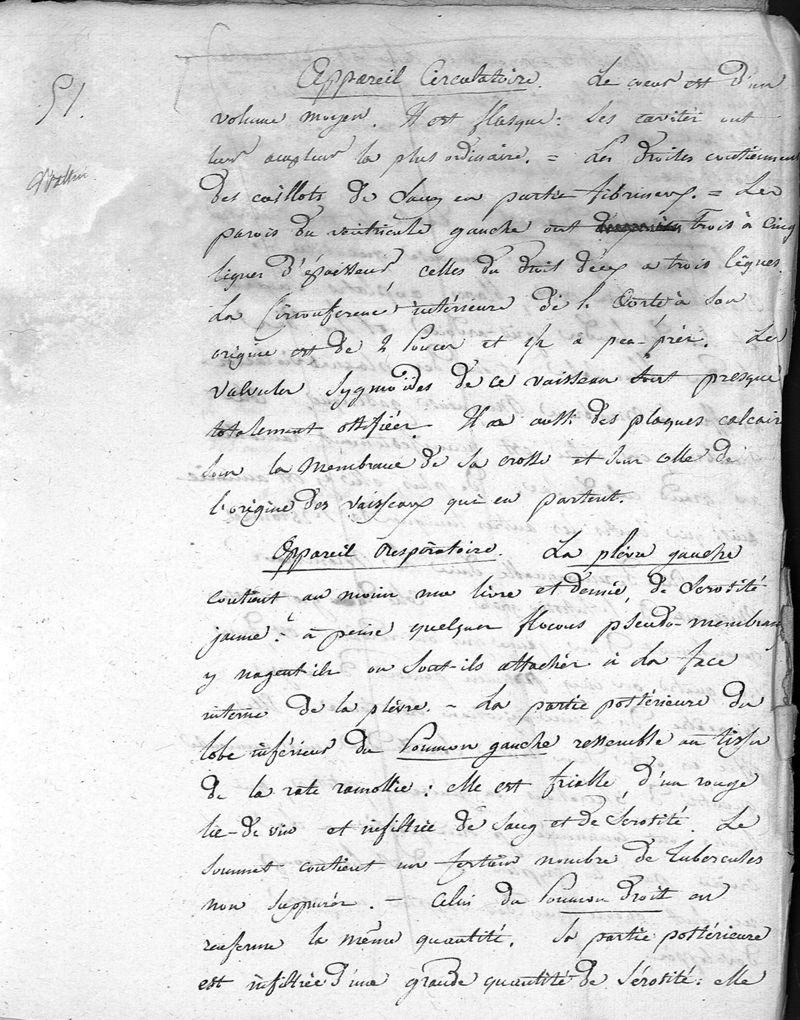 51.
Appareil Circulatoire. Le cœur est d'un
volume moyen. Il est flasque: Ses cavités ont
leur ampleur la plus ordinaire. = Les droites contiennent
des caillots de Sang en partie fibrineux. = Les
parois du ventricule gauche ont trois à cinq
lignes d'épaisseur, celles du droit deux a trois lignes.
La Circonférence intérieure de l'aorte à son
origine est de 2 Pouces et 1/2 a peu-près. Les
valvules Sygmoïdes de ce vaisseau sont presque
totalement ossifiées. Il a aussi des plaques calcaires
sur la membrane de sa crosse et sur celle de
l'origine des vaisseaux qui en partent.
Appareil respiratoire. La plèvre gauche
contient au moins une livre et demie, de Serosité
jaune. à peine quelques flocons pseudo-membran
y nagent-ils ou sont-ils attachés à la face
interne de la plèvre. - La partie postérieure du
lobe inférieur du Poumon gauche ressemble au tissu
de la rate ramollie: elle est friable, d'un rouge
lie-de vin et infiltrée de Sang et de Serosité. Le
sommet contient un certain nombre de tubercules
non suppurés. - Celui du Poumon droit en
renferme la même quantité. Sa partie postérieure
est infiltrée d'une grande quantité de Sérosité: elle